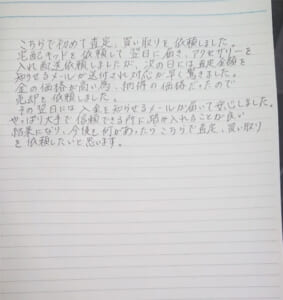 こちらで初めて査定、買い取りを依頼しました。
宅配キッドを依頼して翌日に届き、アクセサリーを
入れ配送依頼しましたが、次の日には査定金額を
知らせるメールが送付され対応が早く驚きました。
金の価格が高い為、納得の価格だったので
売却を依頼しました。
その翌日には入金を知らせるメールが届いて安心しました。
やっぱり大手で信頼できる所に踏み入れることが良い
結果になり、今後も何かあったらこちらで査定、買い取り
を依頼したいと思います。